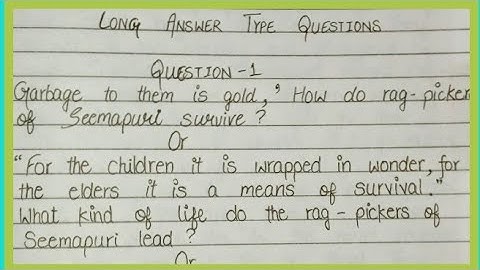 LONG ANSWER TYPE QUESTIONS
QUESTION-1
Garbage to them is gold,' How do rag-picker
of Seemapuri survive?
Or
"For the children it is wrapped in wonder, for
the elders it is a means of survival."
What kind of life do the rag-pickers of
Seemapuri lead?
Or